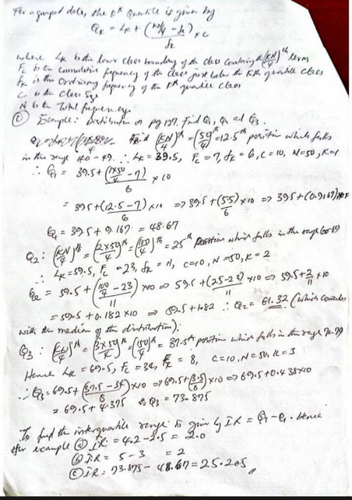 For a grouped data, the kth Quartile is given by
Qk = Lk + (kN/4 - fc) x C
fk
where Lk is the lower class boundary of the class containing the (kN/4)th term
Fc is the cumulative frequency of the class just before the kth quartile class
fk is the ordinary frequency of the kth quartile class
C is the class size
N is the Total frequency
Example: distribution on pg 107. Find Q1, Q2 and Q3.
Find (kN/4)th = (50/4)th = 12.5th position which falls
in the range 40-49. ∴ Lk = 39.5, Fc = 7, fk = 6, C = 10, N = 50, K = 1
∴ Q1 = 39.5 + (1x50/4 - 7) x 10
6
= 39.5 + (12.5 - 7) x 10 => 39.5 + (5.5) x 10 => 39.5 + (0.9167) x 10
6 6
Q1 = 39.5 + 9.167 = 48.67
Q2: (kN/4)th = (2x50/4)th = (100/4)th = 25th Position which falls in the range
∴ Lk = 59.5, Fc = 23, fk = 11, C = 10, N = 50, K = 2
Q2 = 59.5 + (100/4 - 23) x 10 => 59.5 + (25 - 23) x 10 => 59.5 + 2 x 10
11 11 11
= 59.5 + 0.182 x 10 => 59.5 + 1.82 ∴ Q2 = 61.32 (which coincides
with the median of the distribution).
Q3: (kN/4)th = (3x50/4)th = (150/4)th = 37.5th position which falls in the range 70-79
Hence Lk = 69.5, Fc = 34, fk = 8, C = 10, N = 50, K = 3
∴ Q3 = 69.5 + (37.5 - 34) x 10 => 69.5 + (3.5) x 10 => 69.5 + 0.438 x 10
8 8
= 69.5 + 4.375 ∴ Q3 = 73.875
To find the interquartile range is given by IR = Q3 - Q1. Hence
for example (a) IR = 4.2 - 2.5 = 2.0
(b) IR = 5 - 3 = 2
(c) IR = 73.875 - 48.67 = 25.205